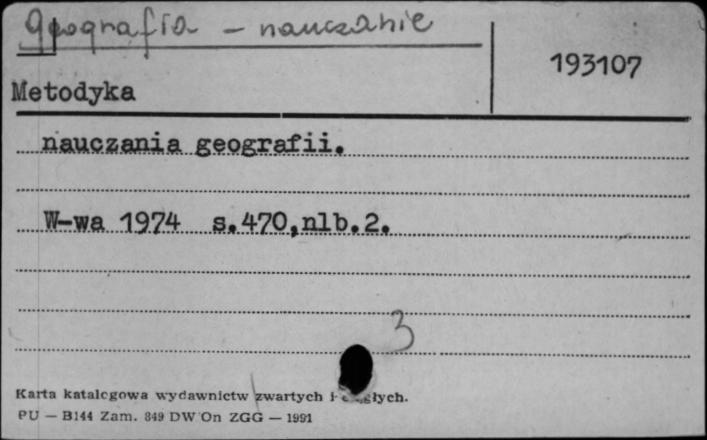 Geografia - nauczanie
193107
Metodyka
nauczania geografii.
W-wa 1974 s.470,nlb.2.
3
Karta katalogowa wydawnictw zwartych i
PU — B144 Zam. 849 DW On ZGG — 1991